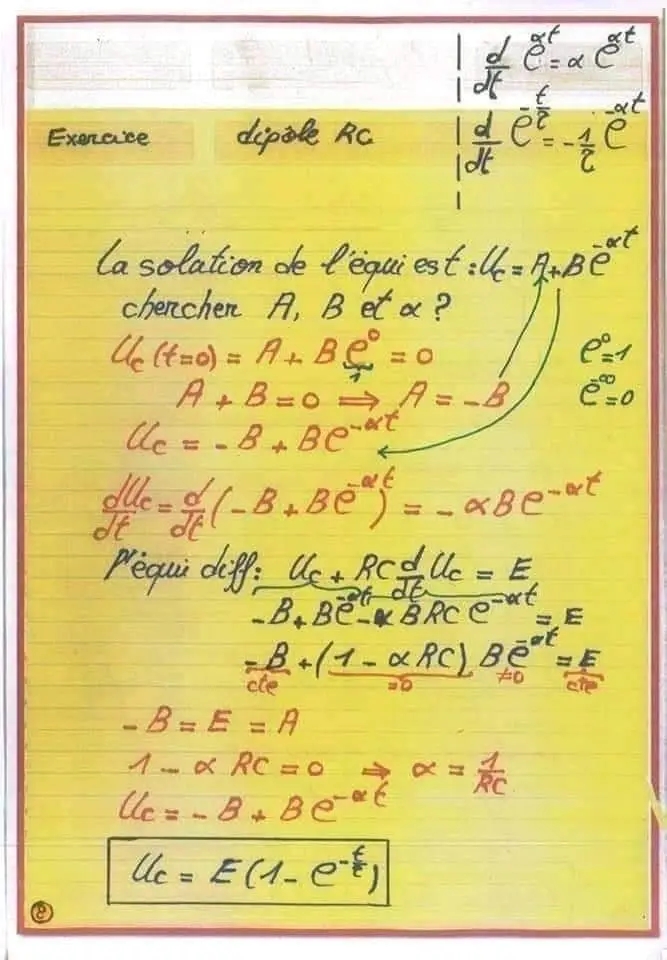 d/dt e^αt = α e^αt
Exercice dipôle RC
d/dt e^-t/τ = -1/τ e^-αt
La solation de l'équi est : Uc = A + B e^-αt
chercher A, B et α ?
Uc (t=0) = A + B e^0 = 0
1
e^0 = 1
A + B = 0 ⟹ A = -B
e^-∞ = 0
Uc = -B + B e^-αt
dUc/dt = d/dt (-B + B e^-αt) = -αB e^-αt
l'équi diff : Uc + RC d/dt Uc = E
-B + B e^-αt - α B RC e^-αt = E
-B + (1 - αRC) B e^-αt = E
cte =0 ≠0 cte
-B = E = A
1 - α RC = 0 ⇒ α = 1/RC
Uc = -B + B e^-αt
Uc = E (1 - e^-t/τ)